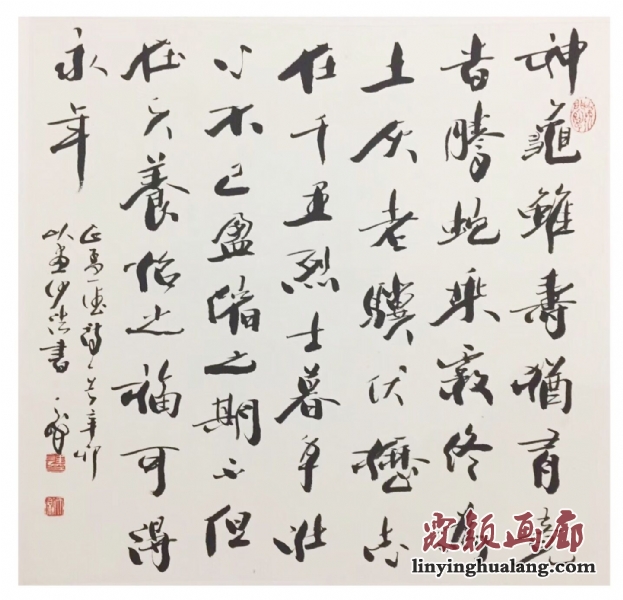 神龜雖壽猶有竟
旹騰蛇乘霧終為
土灰老驥伏櫪志
在千里烈士暮年壯
心不已盈縮之期不但
在天養怡之福可得
永年
德詩一首辛卯
書
颖画廊
linyinghualang.com